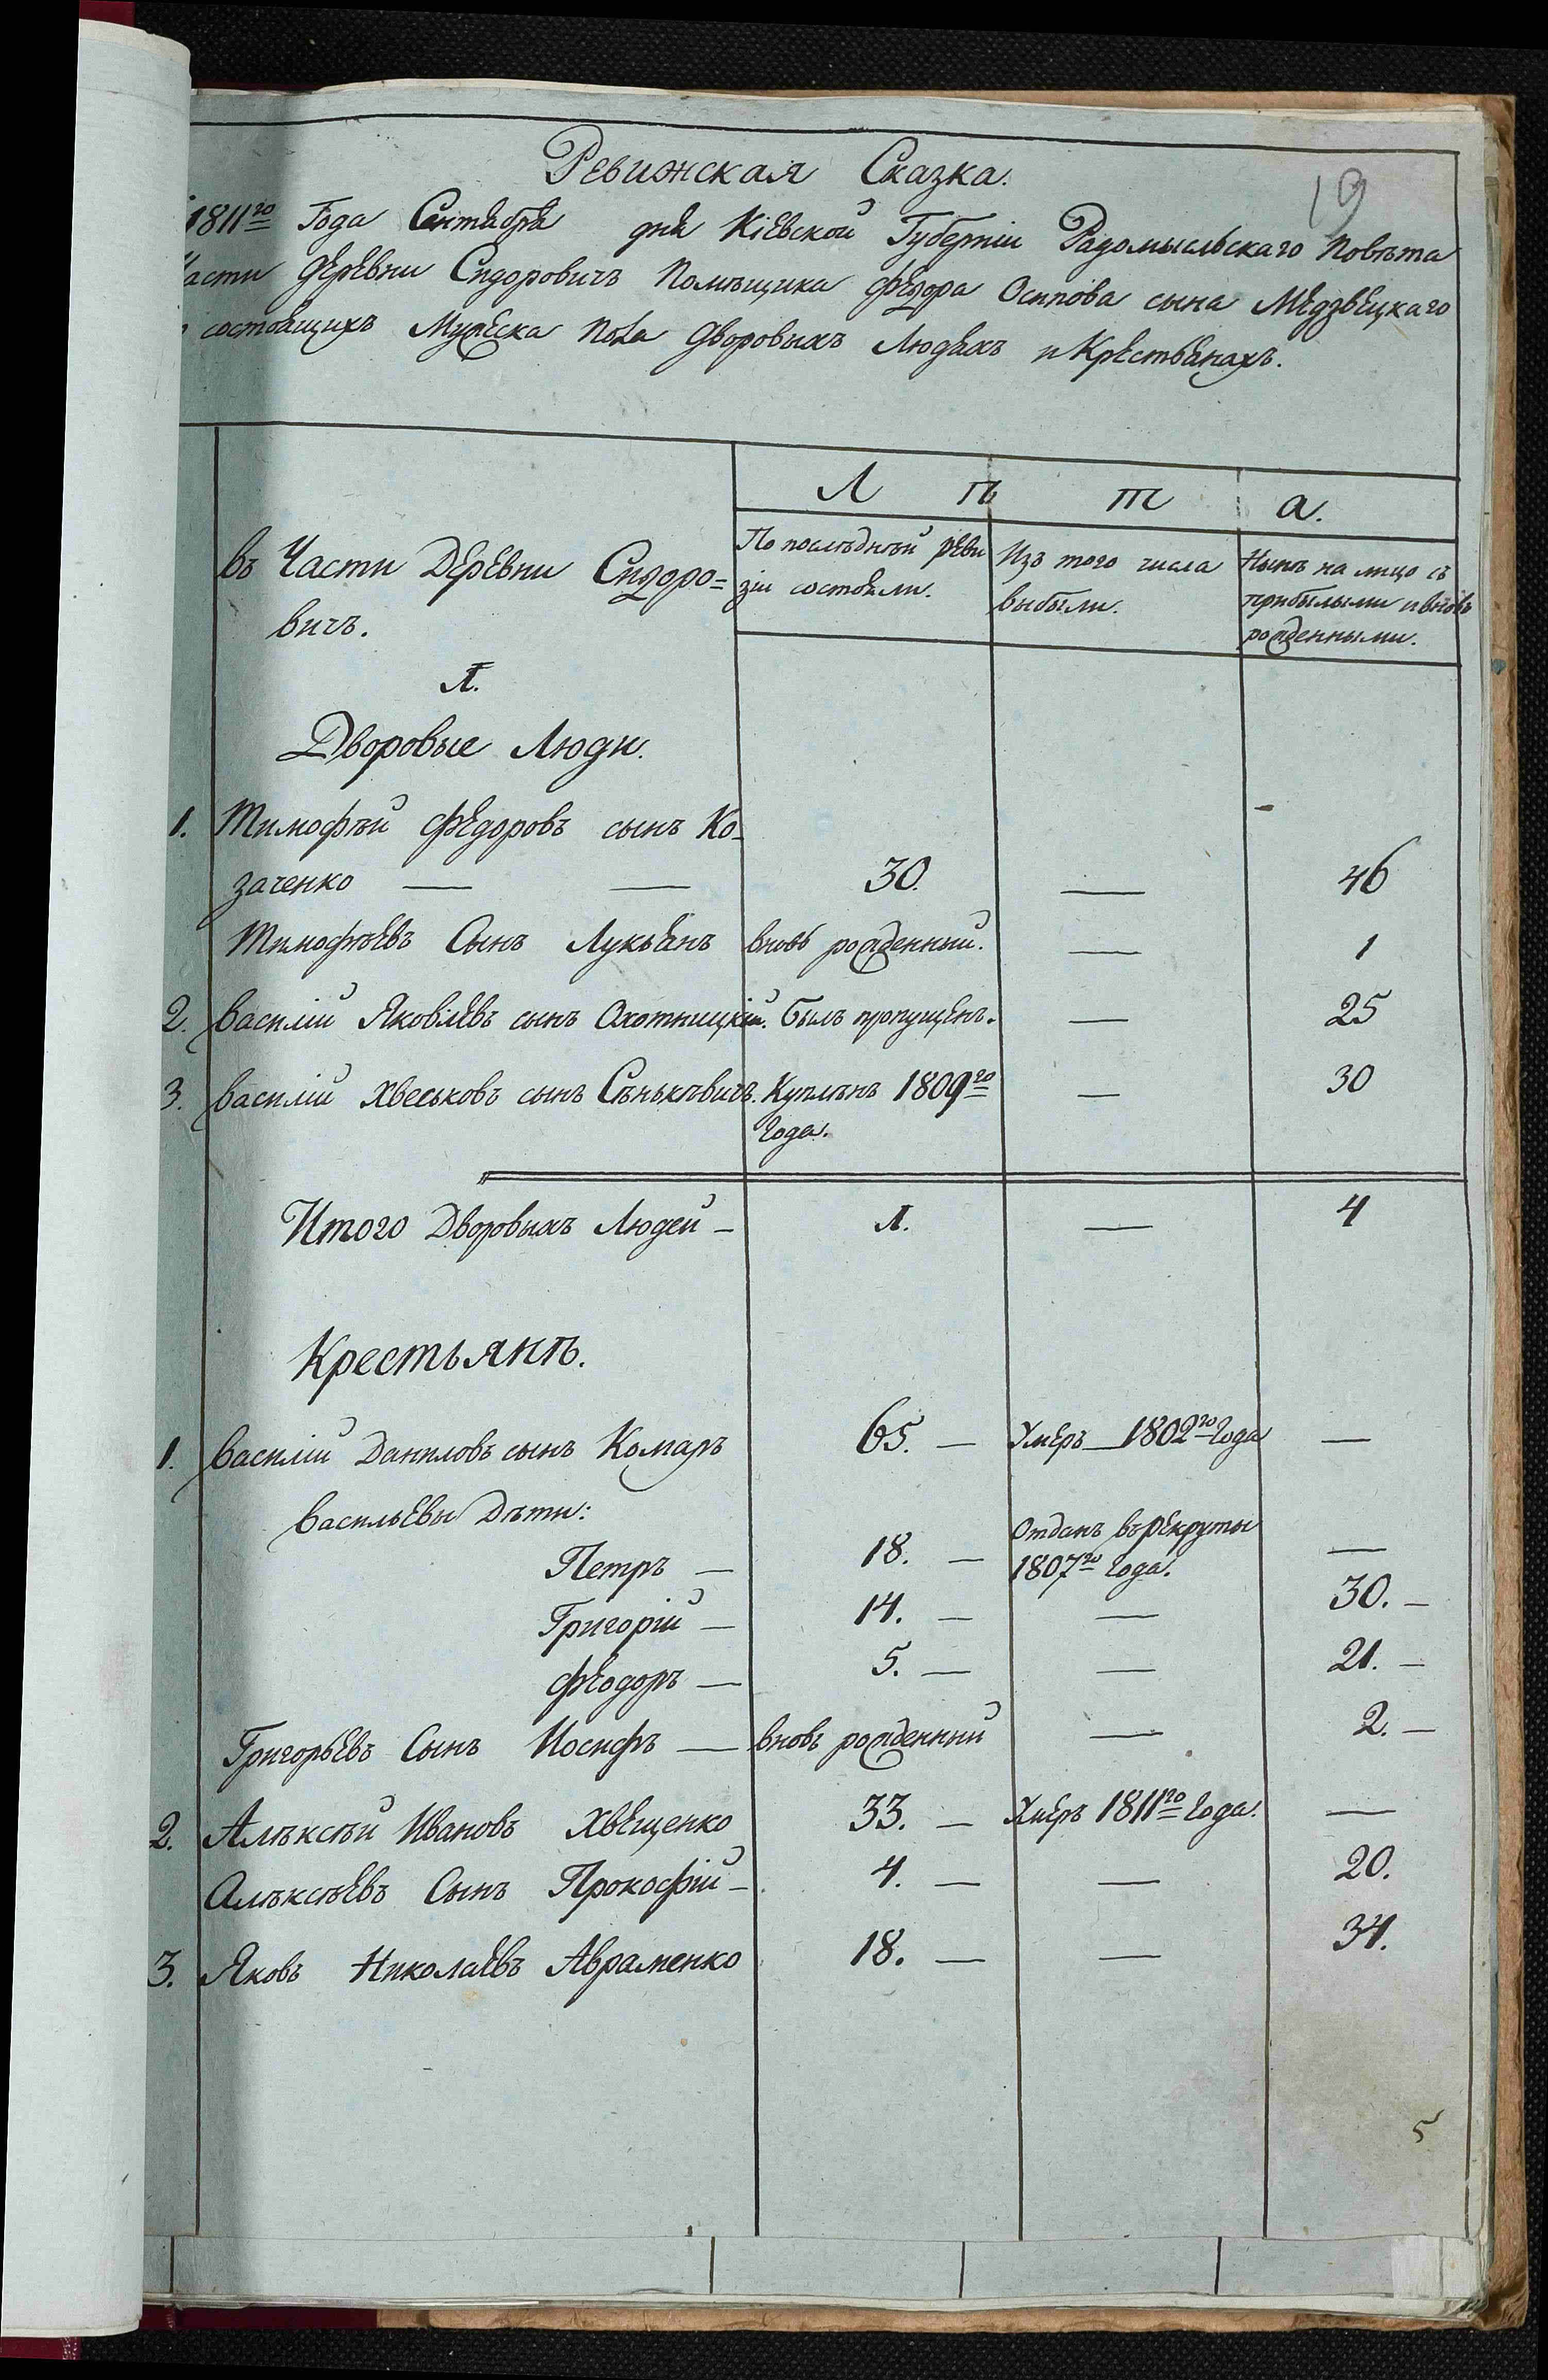 Ревижская Сказка.
19
1811го Года Сентября дня Кіевской Губерніи Радомысльскаго Повѣта
Части Деревни Сидоровичъ Помѣщика Федора Осипова сына Медзвецкаго
состоящихъ Мужеска Пола Дворовыхъ Людяхъ и Крестьянахъ.
Л ѣ т а.
въ Части Деревни Сидоро=
вичъ.
По послѣднѣй реви
зіи состояли.
Изъ того числа
выбыли.
Нынѣ на лицо съ
прибылыми и вновь
рожденными.
Л.
Дворовые Люди.
1. Тимофѣй Федоровъ сынъ Ко-
заченко — — 30. — 46
Тимофѣевъ Сынъ Лукьянъ вновь рожденный. — 1
2. Василій Яковлевъ сынъ Охотницкій. Былъ пропущенъ. — 25
3. Василій Хвеськовъ сынъ Сѣнькѣвичъ. Куплѣнъ 1809го — 30
Года.
Итого Дворовыхъ Людей — Л. — 4
Крестьянѣ.
1. Василій Даниловъ сынъ Комаръ 65. — Умеръ 1802го Года —
Васильевы Дѣти:
Петръ — 18. — Отданъ въ рекруты
1807го Года. —
Григорій — 14. — — 30. —
Феодоръ — 5. — — 21. —
Григорьевъ Сынъ Иосифъ — вновь рожденный — 2. —
2. Алѣксѣй Ивановъ Хвещенко 33. — Умеръ 1811го Года. —
Алѣксѣевъ Сынъ Прокофій — 4. — — 20.
3. Яковъ Николаевъ Авраменко 18. — — 34.
5